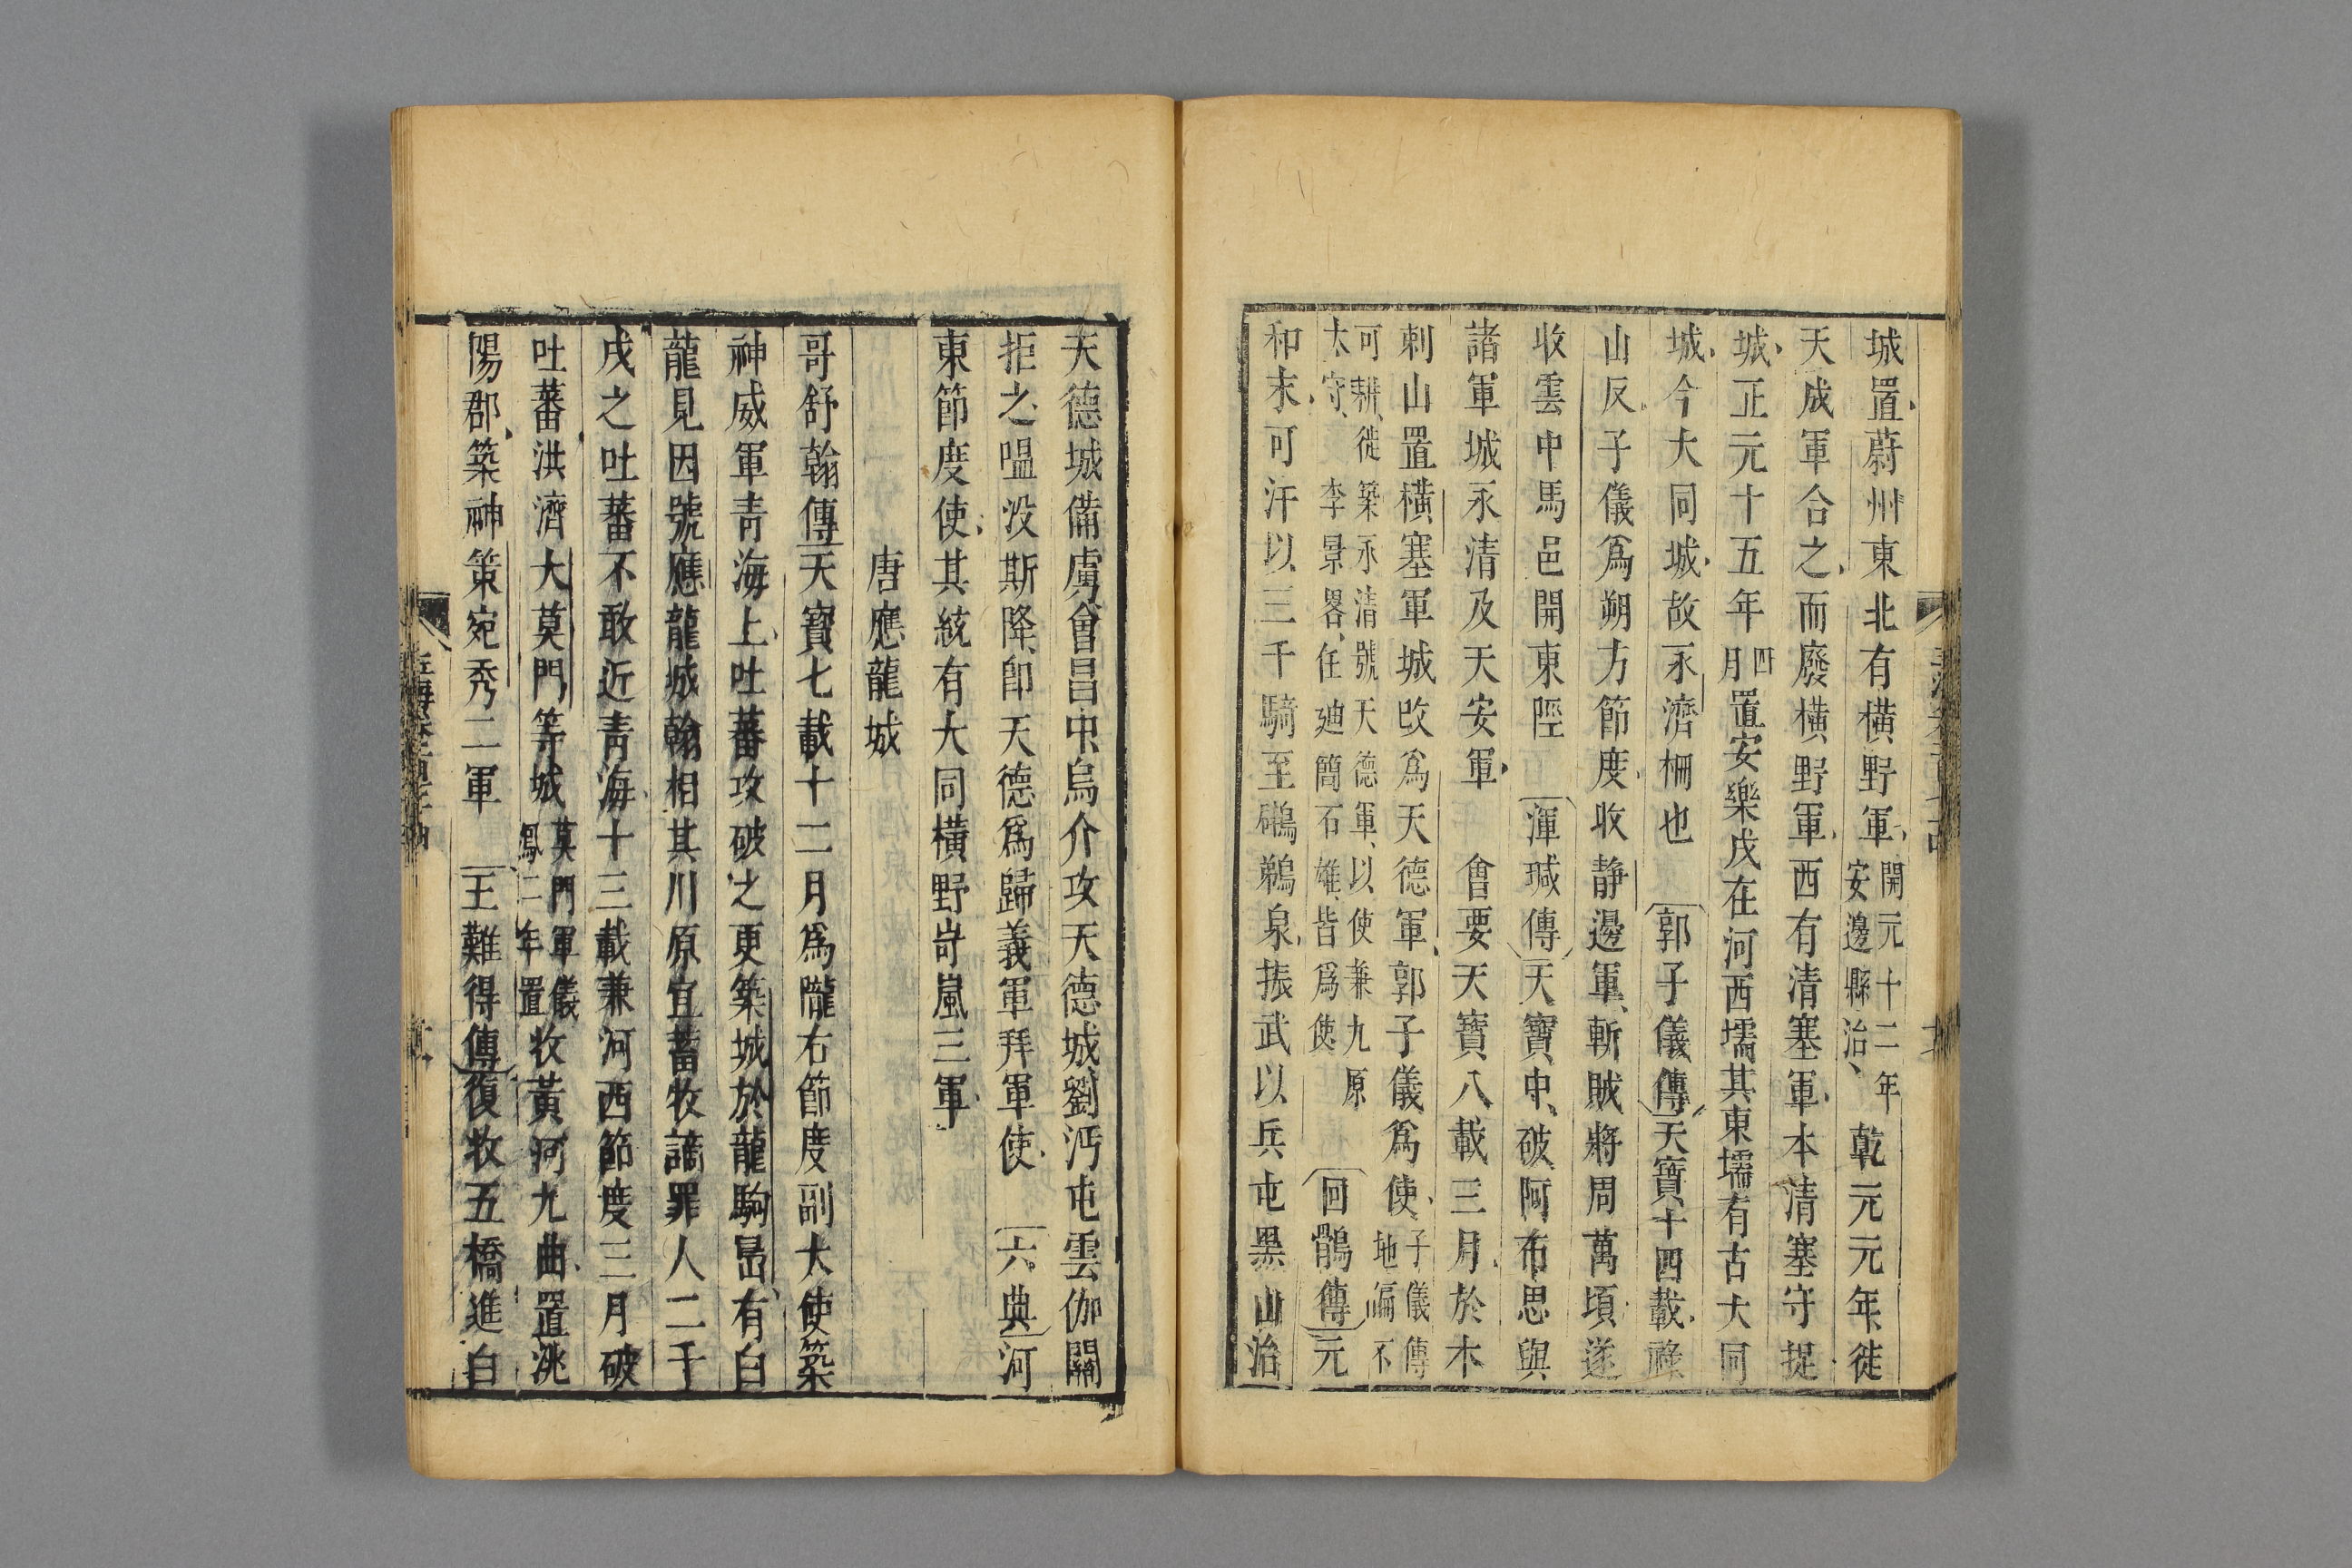 城置蔚州東北有橫野軍開元十二年安邊縣治乾元元年徙
天成軍合之而廢橫野軍西有清塞軍本清塞守捉
城正元十五年四月置安樂戍在河西壖其東壖有古大同
城今大同城故永濟柵也郭子儀傳天寶十四載祿
山反子儀爲朔方節度收静邊軍斬賊將周萬頃遂
收雲中馬邑開東陘渾瑊傳天寶中破阿布思與
諸軍城永清及天安軍會要天寶八載三月於木
剌山置橫塞軍城改爲天德軍郭子儀爲使子儀傳地偏不
可耕徙築永清號天德軍以使兼九原太守李景畧任迪簡石雄皆爲使回鶻傳元
和末可汗以三千騎至鸊鵜泉振武以兵屯黑山治
天德城備虜會昌中烏介攻天德城劉沔屯雲伽關
拒之嗢没斯降卽天德爲歸義軍拜軍使六典河
東節度使其統有大同橫野岢嵐三軍
唐應龍城
哥舒翰傳天寶七載十二月爲隴右節度副大使築
神威軍青海上吐蕃攻破之更築城於龍駒島有白
龍見因號應龍城翰相其川原宜蓄牧謫罪人二千
戍之吐蕃不敢近青海十三載兼河西節度三月破
吐蕃洪濟大莫門等城莫門軍儀鳳二年置收黃河九曲置洮
陽郡築神策宛秀二軍王難得傳復收五橋進白